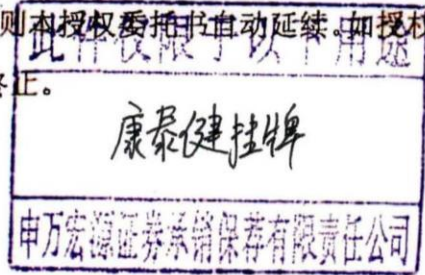 则本授权委托书自动延续。如授权
此件仅限于以下用途
终止。
康泰健挂牌
申万宏源证券承销保荐有限责任公司